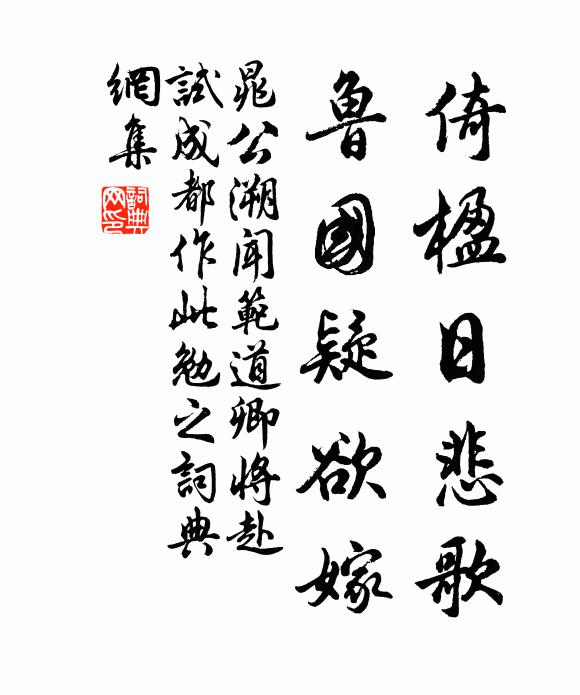 倚楹日悲歌
魯國疑欲嫁
晁公溯聞範道卿將赴
試成都作此勉之詞典
網集
詞典
网印